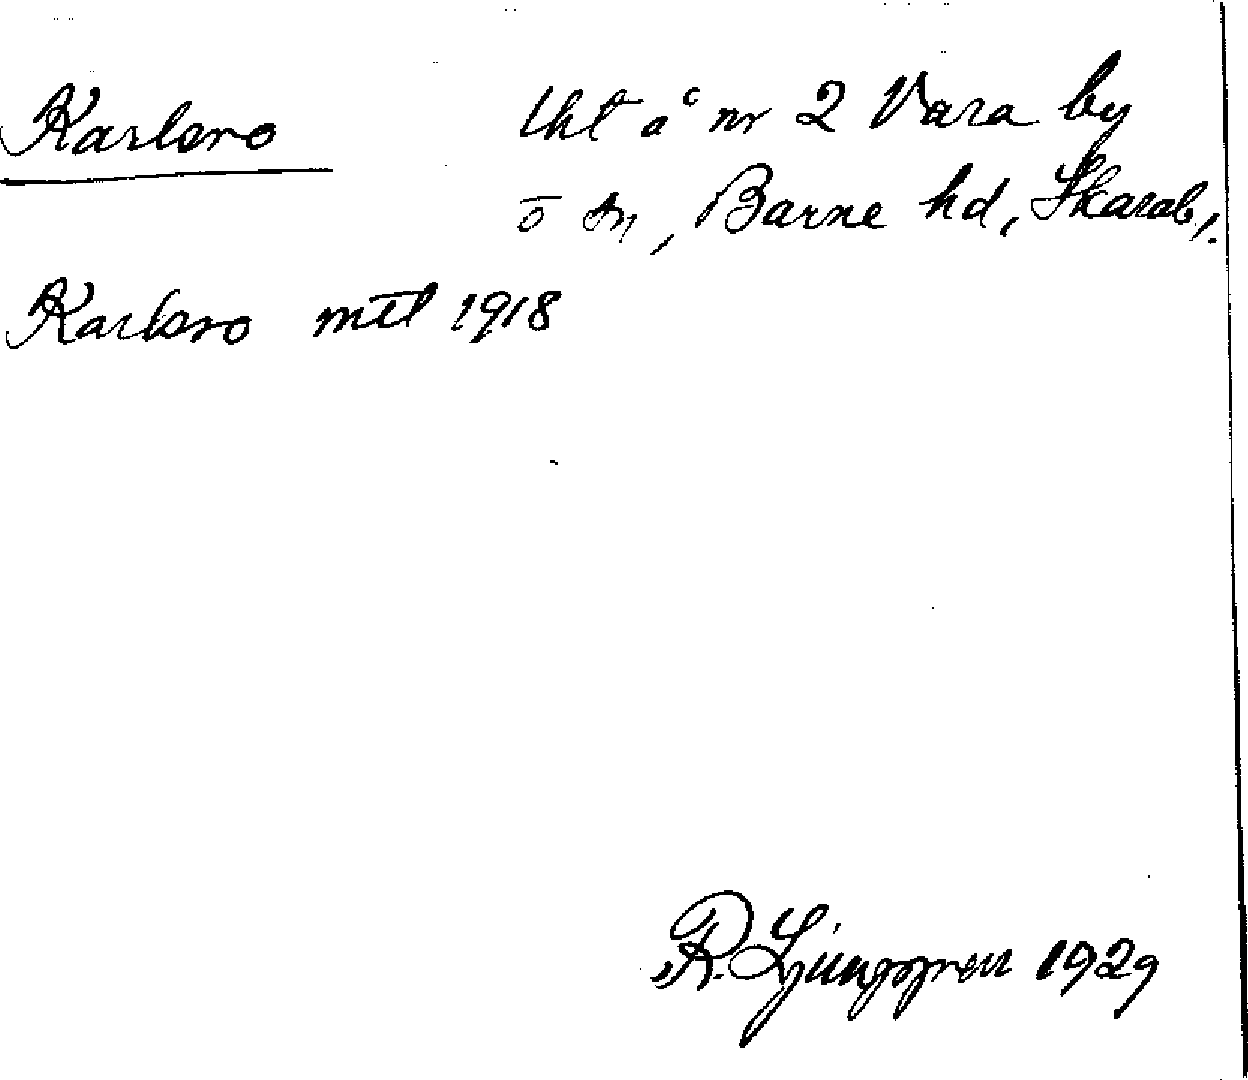 Karlsro lht å nr 2 Vara by
o sn, Barne hd, Skarab,.
Karlsro mtl 1918
R. Ljunggren 1929